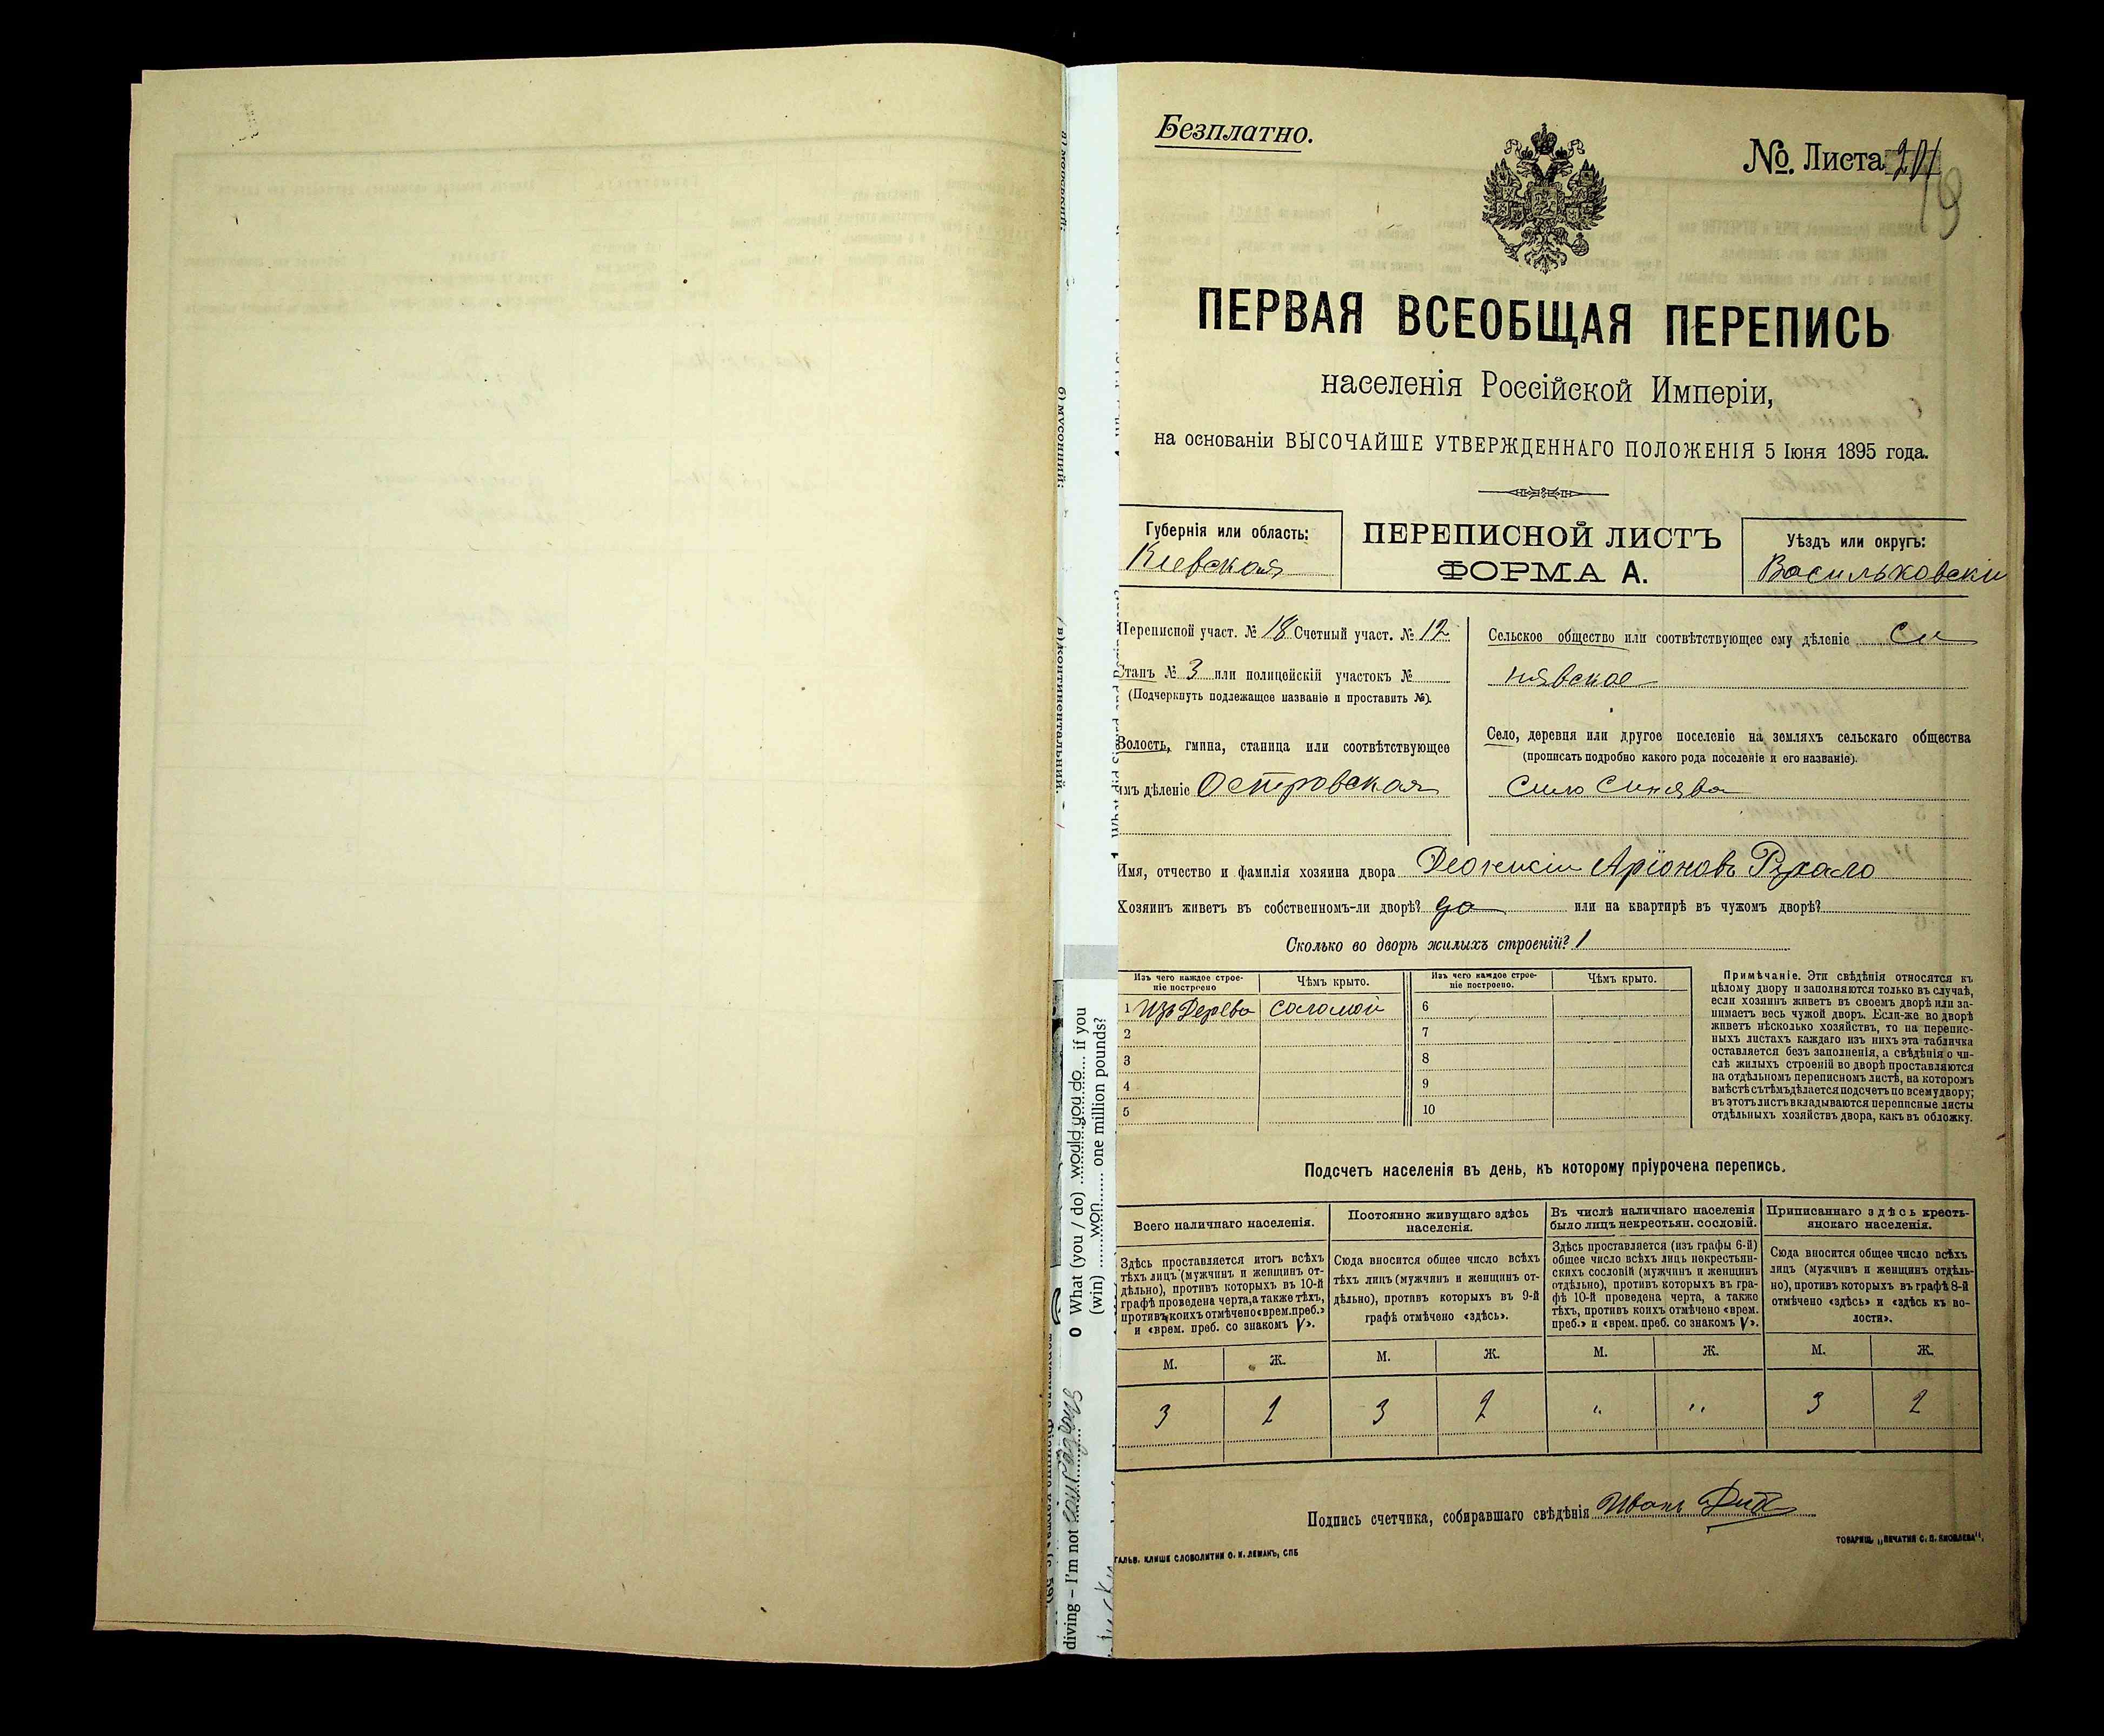 Безплатно.
№. Листа 201
19
ПЕРВАЯ ВСЕОБЩАЯ ПЕРЕПИСЬ
населенія Россійской Имперіи,
на основаніи ВЫСОЧАЙШЕ УТВЕРЖДЕННАГО ПОЛОЖЕНІЯ 5 Іюня 1895 года.
Губернія или область:
Кіевская
ПЕРЕПИСНОЙ ЛИСТЪ
ФОРМА А.
Уѣздъ или округъ:
Васильковски
Переписной участ. № 18 Счетный участ. № 12
Станъ № 3 или полицейскій участокъ №
(Подчеркнуть подлежащее названіе и проставить №).
Волость, гмина, станица или соотвѣтствующее
имъ дѣленіе Островская
Сельское общество или соотвѣтствующее ему дѣленіе Си
нявское
Село, деревня или другое поселеніе на земляхъ сельскаго общества
(прописать подробно какого рода поселеніе и его названіе).
Село Синява
Имя, отчество и фамилія хозяина двора Аріоновъ
Хозяинъ живетъ въ собственномъ-ли дворѣ? да или на квартирѣ въ чужомъ дворѣ?
Сколько во дворѣ жилыхъ строеній? 1
Изъ чего каждое строе-
ніе построено
Чѣмъ крыто.
Изъ чего каждое строе-
ніе построено.
Чѣмъ крыто.
1 Изъ Дерева соломой 6
2 7
3 8
4 9
5 10
Примѣчаніе. Эти свѣдѣнія относятся къ
цѣлому двору и заполняются только въ случаѣ,
если хозяинъ живетъ въ своемъ дворѣ или за-
нимаетъ весь чужой дворъ. Если-же во дворѣ
живетъ нѣсколько хозяйствъ, то на перепис-
ныхъ листахъ каждаго изъ нихъ эта табличка
оставляется безъ заполненія, а свѣдѣнія о чи-
слѣ жилыхъ строеній во дворѣ проставляются
на отдѣльномъ переписномъ листѣ, на которомъ
вмѣстѣ съ тѣмъ дѣлается подсчетъ по всему двору;
въ этотъ листъ вкладываются переписные листы
отдѣльныхъ хозяйствъ двора, какъ въ обложку.
Подсчетъ населенія въ день, къ которому пріурочена перепись.
Всего наличнаго населенія.
Здѣсь проставляется итогъ всѣхъ
тѣхъ лицъ (мужчинъ и женщинъ от-
дѣльно), противъ которыхъ въ 10-й
графѣ проведена черта, а также тѣхъ,
противъ коихъ отмѣчено «врем. преб.»
и «врем. преб. со знакомъ V».
Постоянно живущаго здѣсь
населенія.
Сюда вносится общее число всѣхъ
тѣхъ лицъ (мужчинъ и женщинъ от-
дѣльно), противъ которыхъ въ 9-й
графѣ отмѣчено «здѣсь».
Въ числѣ наличнаго населенія
было лицъ некрестьян. сословій.
Здѣсь проставляется (изъ графы 6-й)
общее число всѣхъ лицъ некрестьян-
скихъ сословій (мужчинъ и женщинъ
отдѣльно), противъ которыхъ въ гра-
фѣ 10-й проведена черта, а также
тѣхъ, противъ коихъ отмѣчено «врем.
преб.» и «врем. преб. со знакомъ V».
Приписаннаго здѣсь кресть-
янскаго населенія.
Сюда вносится общее число всѣхъ
лицъ (мужчинъ и женщинъ отдѣль-
но), противъ которыхъ въ графѣ 8-й
отмѣчено «здѣсь» и «здѣсь къ во-
лости».
М. Ж. М. Ж. М. Ж. М. Ж.
3 2 3 2 " " 3 2
Подпись счетчика, собиравшаго свѣдѣнія Иванъ
ГАЛЬВ. КЛИШЕ СЛОВОЛИТНИ О. И. ЛЕМАНЪ, СПБ
ТОВАРИЩ. „ПЕЧАТНЯ С. П. ЯКОВЛЕВА“.
б) мусонний;
в) континентальний.
What (you / do) would you do if you
(win) won one million pounds?
diving – I'm not